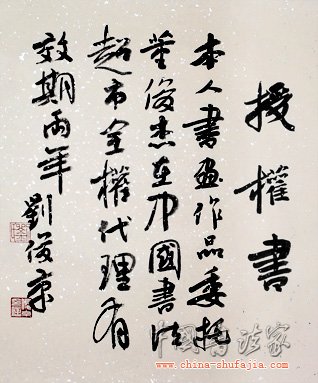 授權書
本人書畫作品委托
董俊杰在中國書法
超市全權代理有
效期兩年
劉俊京
china-shufajia.com